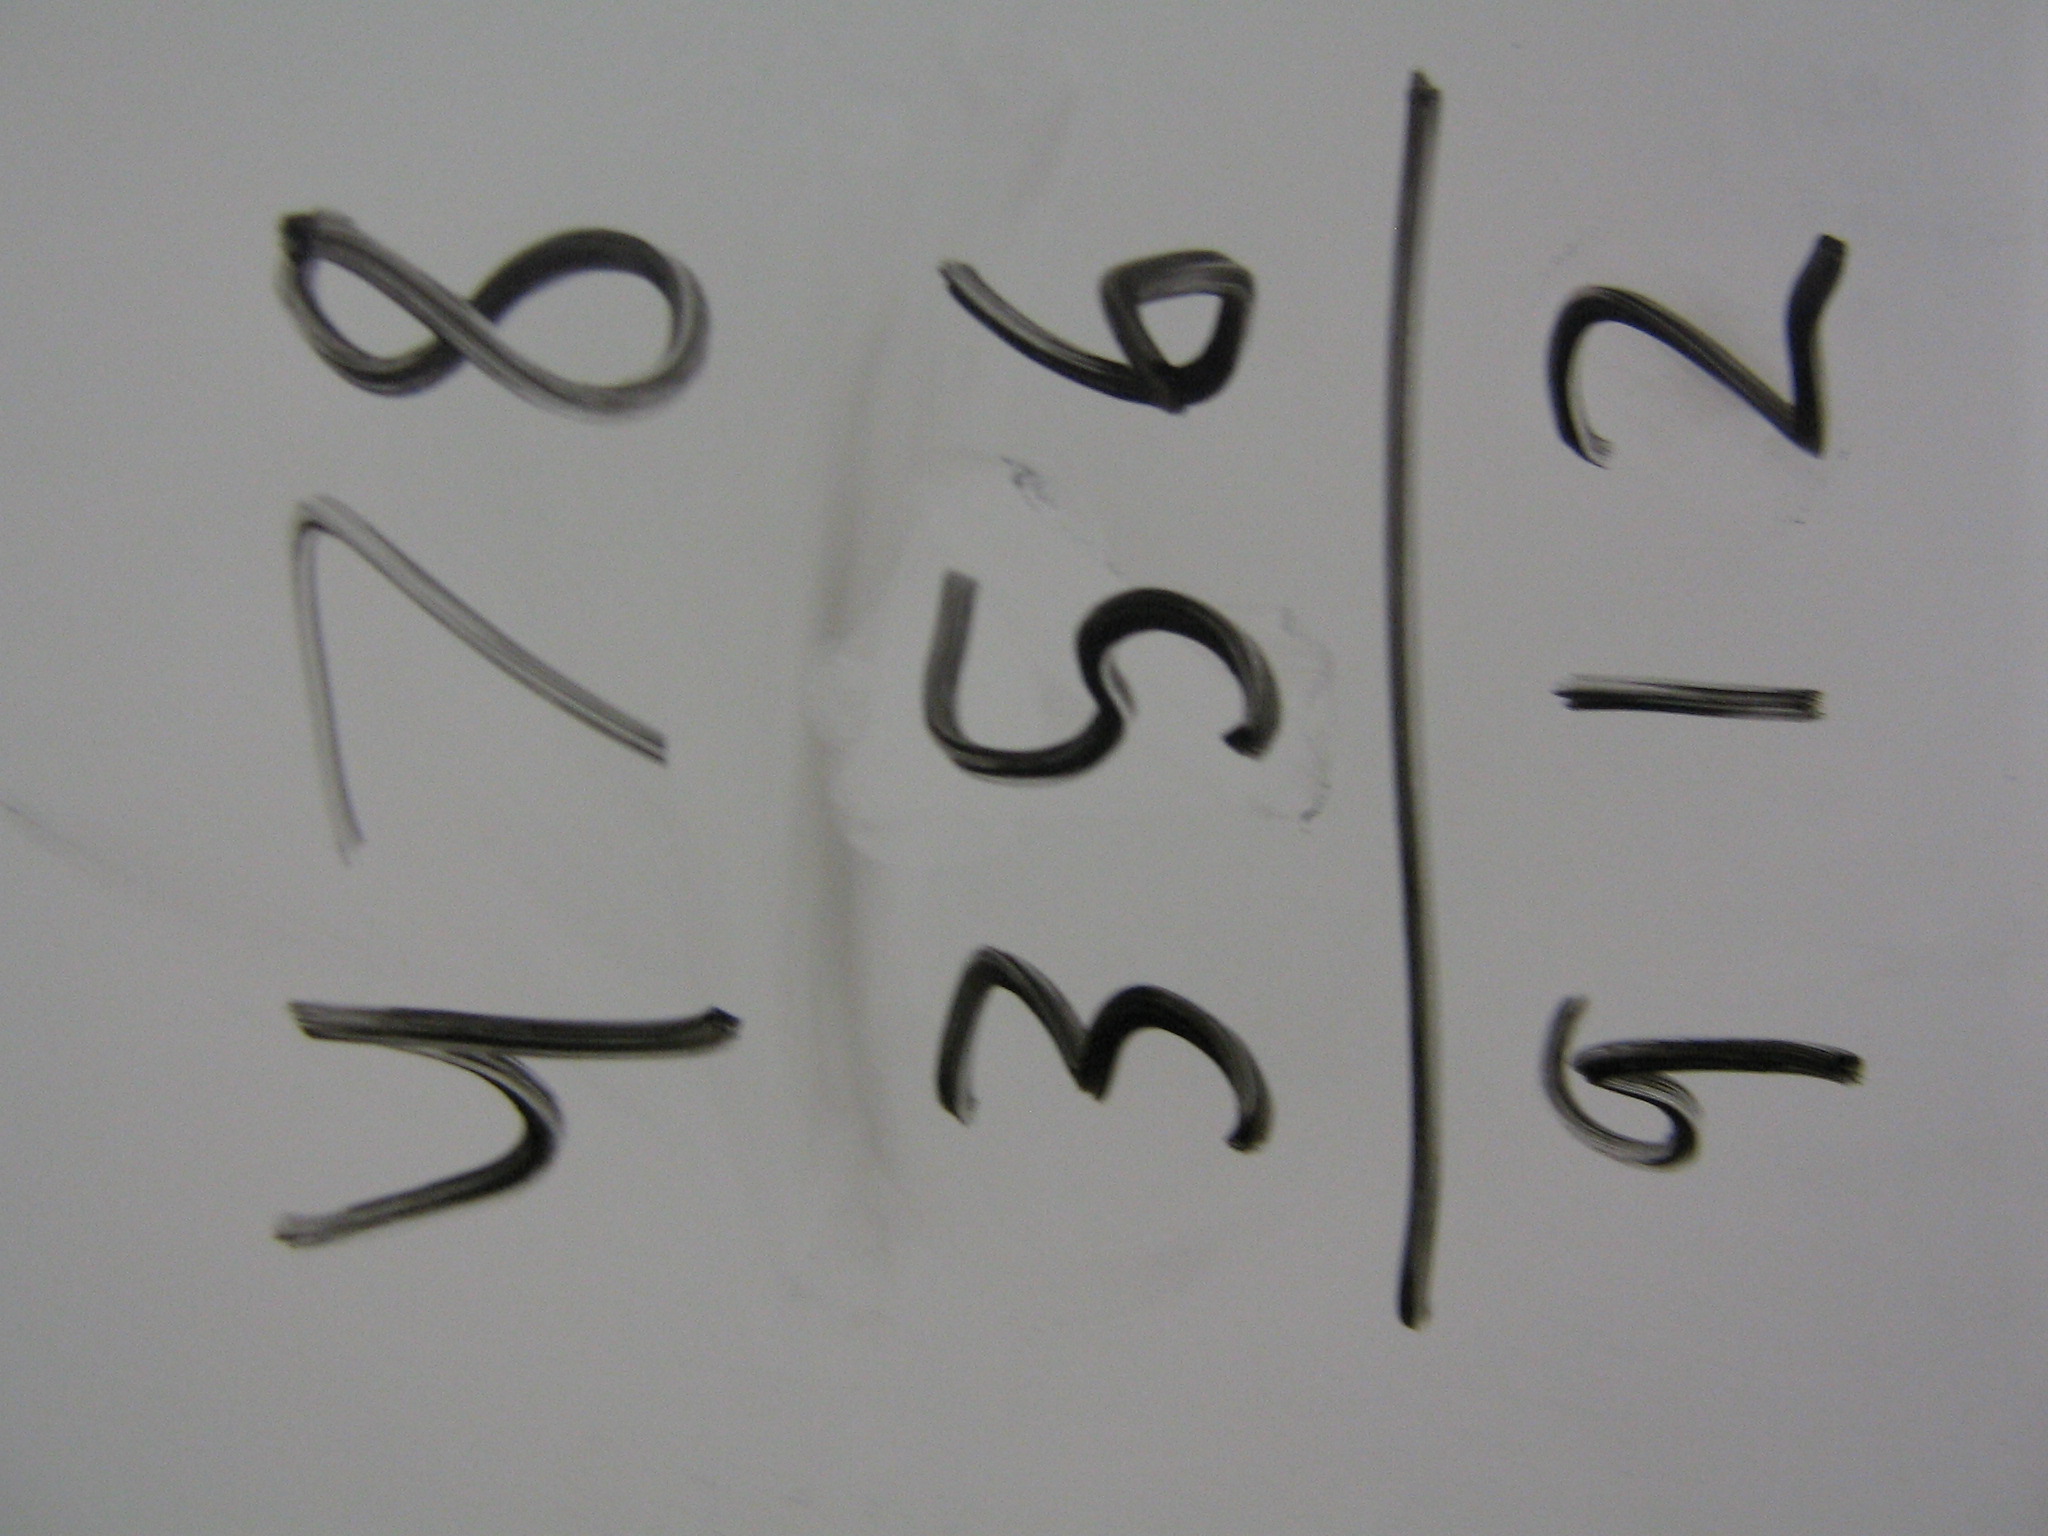 478
356
912